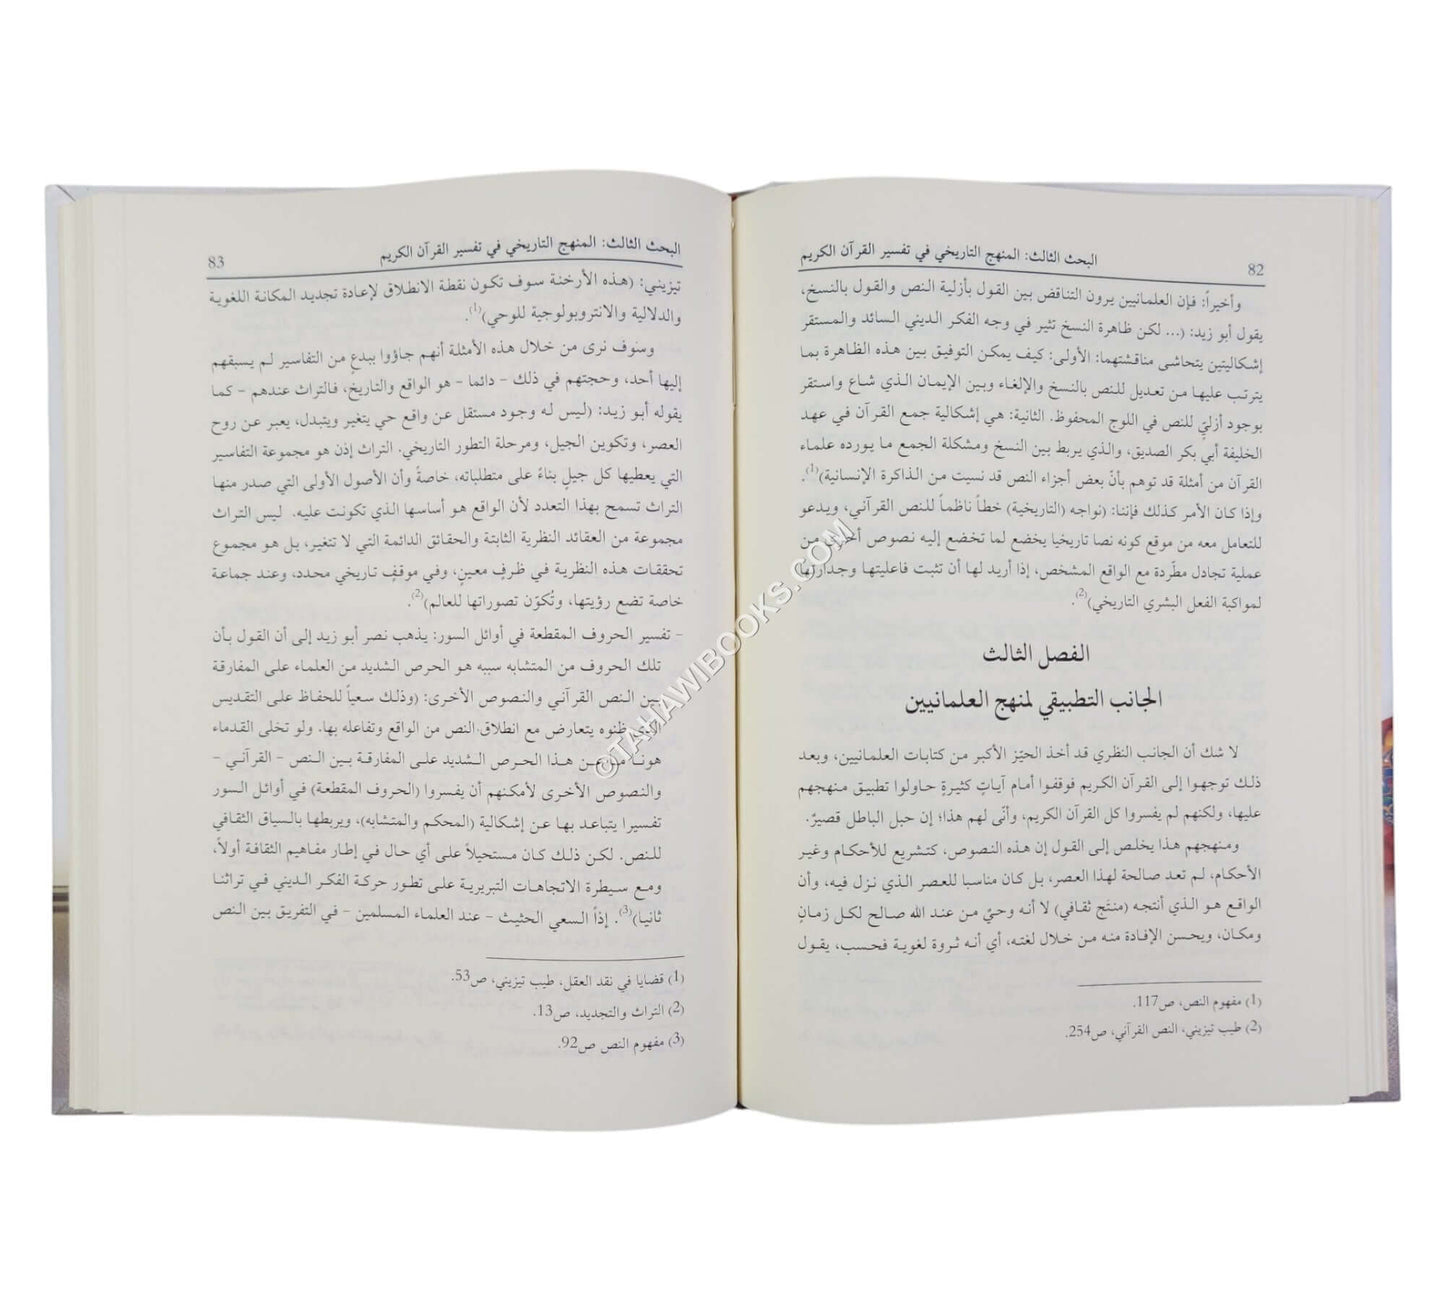 82
البحث الثالث: المنهج التاريخي في تفسير القرآن الكريم
وأخيراً: فإن العلمانيين يرون التناقض بين القول بأزلية النص والقول بالنسخ،
يقول أبو زيد: (... لكن ظاهرة النسخ تثير في وجه الفكر الديني السائد والمستقر
إشكاليتين يتحاشى مناقشتهما: الأولى: كيف يمكن التوفيق بين هذه الظاهرة بما
يترتب عليها من تعديل للنص بالنسخ والإلغاء وبين الإيمان الذي شاع واستقر
بوجود أزليٍّ للنص في اللوح المحفوظ. الثانية: هي إشكالية جمع القرآن في عهد
الخليفة أبي بكر الصديق، والذي يربط بين النسخ ومشكلة الجمع ما يورده علماء
القرآن من أمثلة قد توهم بأنّ بعض أجزاء النص قد نسيت من الذاكرة الإنسانية)(1).
وإذا كان الأمر كذلك فإننا: (نواجه (التاريخية) خطاً ناظماً للنص القرآني، ويدعو
للتعامل معه من موقع كونه نصا تاريخيا يخضع لما تخضع إليه نصوص أخرى من
عملية تجادل مطّردة مع الواقع المشخص، إذا أريد لها أن تثبت فاعليتها وجدارتها
لمواكبة الفعل البشري التاريخي)(2).
الفصل الثالث
الجانب التطبيقي لمنهج العلمانيين
لا شك أن الجانب النظري قد أخذ الحيّز الأكبر من كتابات العلمانيين، وبعد
ذلك توجهوا إلى القرآن الكريم فوقفوا أمام آياتٍ كثيرةٍ حاولوا تطبيق منهجهم
عليها، ولكنهم لم يفسروا كل القرآن الكريم، وأنّى لهم هذا؛ إن حبل الباطل قصيرٌ.
ومنهجهم هذا يخلص إلى القول إن هذه النصوص، كتشريع للأحكام وغير
الأحكام، لم تعد صالحة لهذا العصر، بل كان مناسبا للعصر الذي نزل فيه، وأن
الواقع هو الذي أنتجه (منتَج ثقافي) لا أنه وحيٌ من عند الله صالح لكل زمانٍ
ومكان، ويحسن الإفادة منه من خلال لغته، أي أنه ثروة لغوية فحسب، يقول
(1) مفهوم النص، ص117.
(2) طيب تيزيني، النص القرآني، ص254.
البحث الثالث: المنهج التاريخي في تفسير القرآن الكريم
83
تيزيني: (هذه الأرخنة سوف تكون نقطة الانطلاق لإعادة تجديد المكانة اللغوية
والدلالية والانتروبولوجية للوحي)(1).
وسوف نرى من خلال هذه الأمثلة أنهم جاؤوا ببدعٍ من التفاسير لم يسبقهم
إليها أحد، وحجتهم في ذلك - دائما - هو الواقع والتاريخ، فالتراث عندهم - كما
يقوله أبو زيد: (ليس له وجود مستقل عن واقع حي يتغير ويتبدل، يعبر عن روح
العصر، وتكوين الجيل، ومرحلة التطور التاريخي. التراث إذن هو مجموعة التفاسير
التي يعطيها كل جيلٍ بناءً على متطلباته، خاصةً وأن الأصول الأولى التي صدر منها
التراث تسمح بهذا التعدد لأن الواقع هو أساسها الذي تكونت عليه. ليس التراث
مجموعة من العقائد النظرية الثابتة والحقائق الدائمة التي لا تتغير، بل هو مجموع
تحققات هذه النظرية في ظرفٍ معينٍ، وفي موقفٍ تاريخي محدد، وعند جماعة
خاصة تضع رؤيتها، وتُكوّن تصوراتها للعالم)(2).
- تفسير الحروف المقطعة في أوائل السور: يذهب نصر أبو زيد إلى أن القول بأن
تلك الحروف من المتشابه سببه هو الحرص الشديد من العلماء على المفارقة
بين النص القرآني والنصوص الأخرى: (وذلك سعياً للحفاظ على التقديس
الذي ظنوه يتعارض مع انطلاق النص من الواقع وتفاعله بها. ولو تخلى القدماء
هونا ما عن هذا الحرص الشديد على المفارقة بين النص - القرآني -
والنصوص الأخرى لأمكنهم أن يفسروا (الحروف المقطعة) في أوائل السور
تفسيرا يتباعد بها عن إشكالية (المحكم والمتشابه)، ويربطها بالسياق الثقافي
للنص. لكن ذلك كان مستحيلاً على أي حال في إطار مفاهيم الثقافة أولاً،
ومع سيطرة الاتجاهات التبريرية على تطور حركة الفكر الديني في تراثنا
ثانيا)(3). إذاً السعي الحثيث - عند العلماء المسلمين - في التفريق بين النص
(1) قضايا في نقد العقل، طيب تيزيني، ص53.
(2) التراث والتجديد، ص13.
(3) مفهوم النص ص92.
©TAHAWIBOOKS.COM